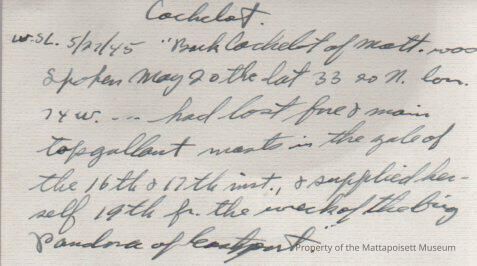 Cachelot.
W.S.L. 5/27/45 "Bark Cachelot of Matt. was
spoken May 20th lat 33 20 N. lon.
74 W. --- had lost fore & main
topgallant masts in the gale of
the 16th & 17th inst., & supplied her-
self 19th fr. the wreck of the brig
Pandora of Eastport"
Property of the Mattapoisett Museum